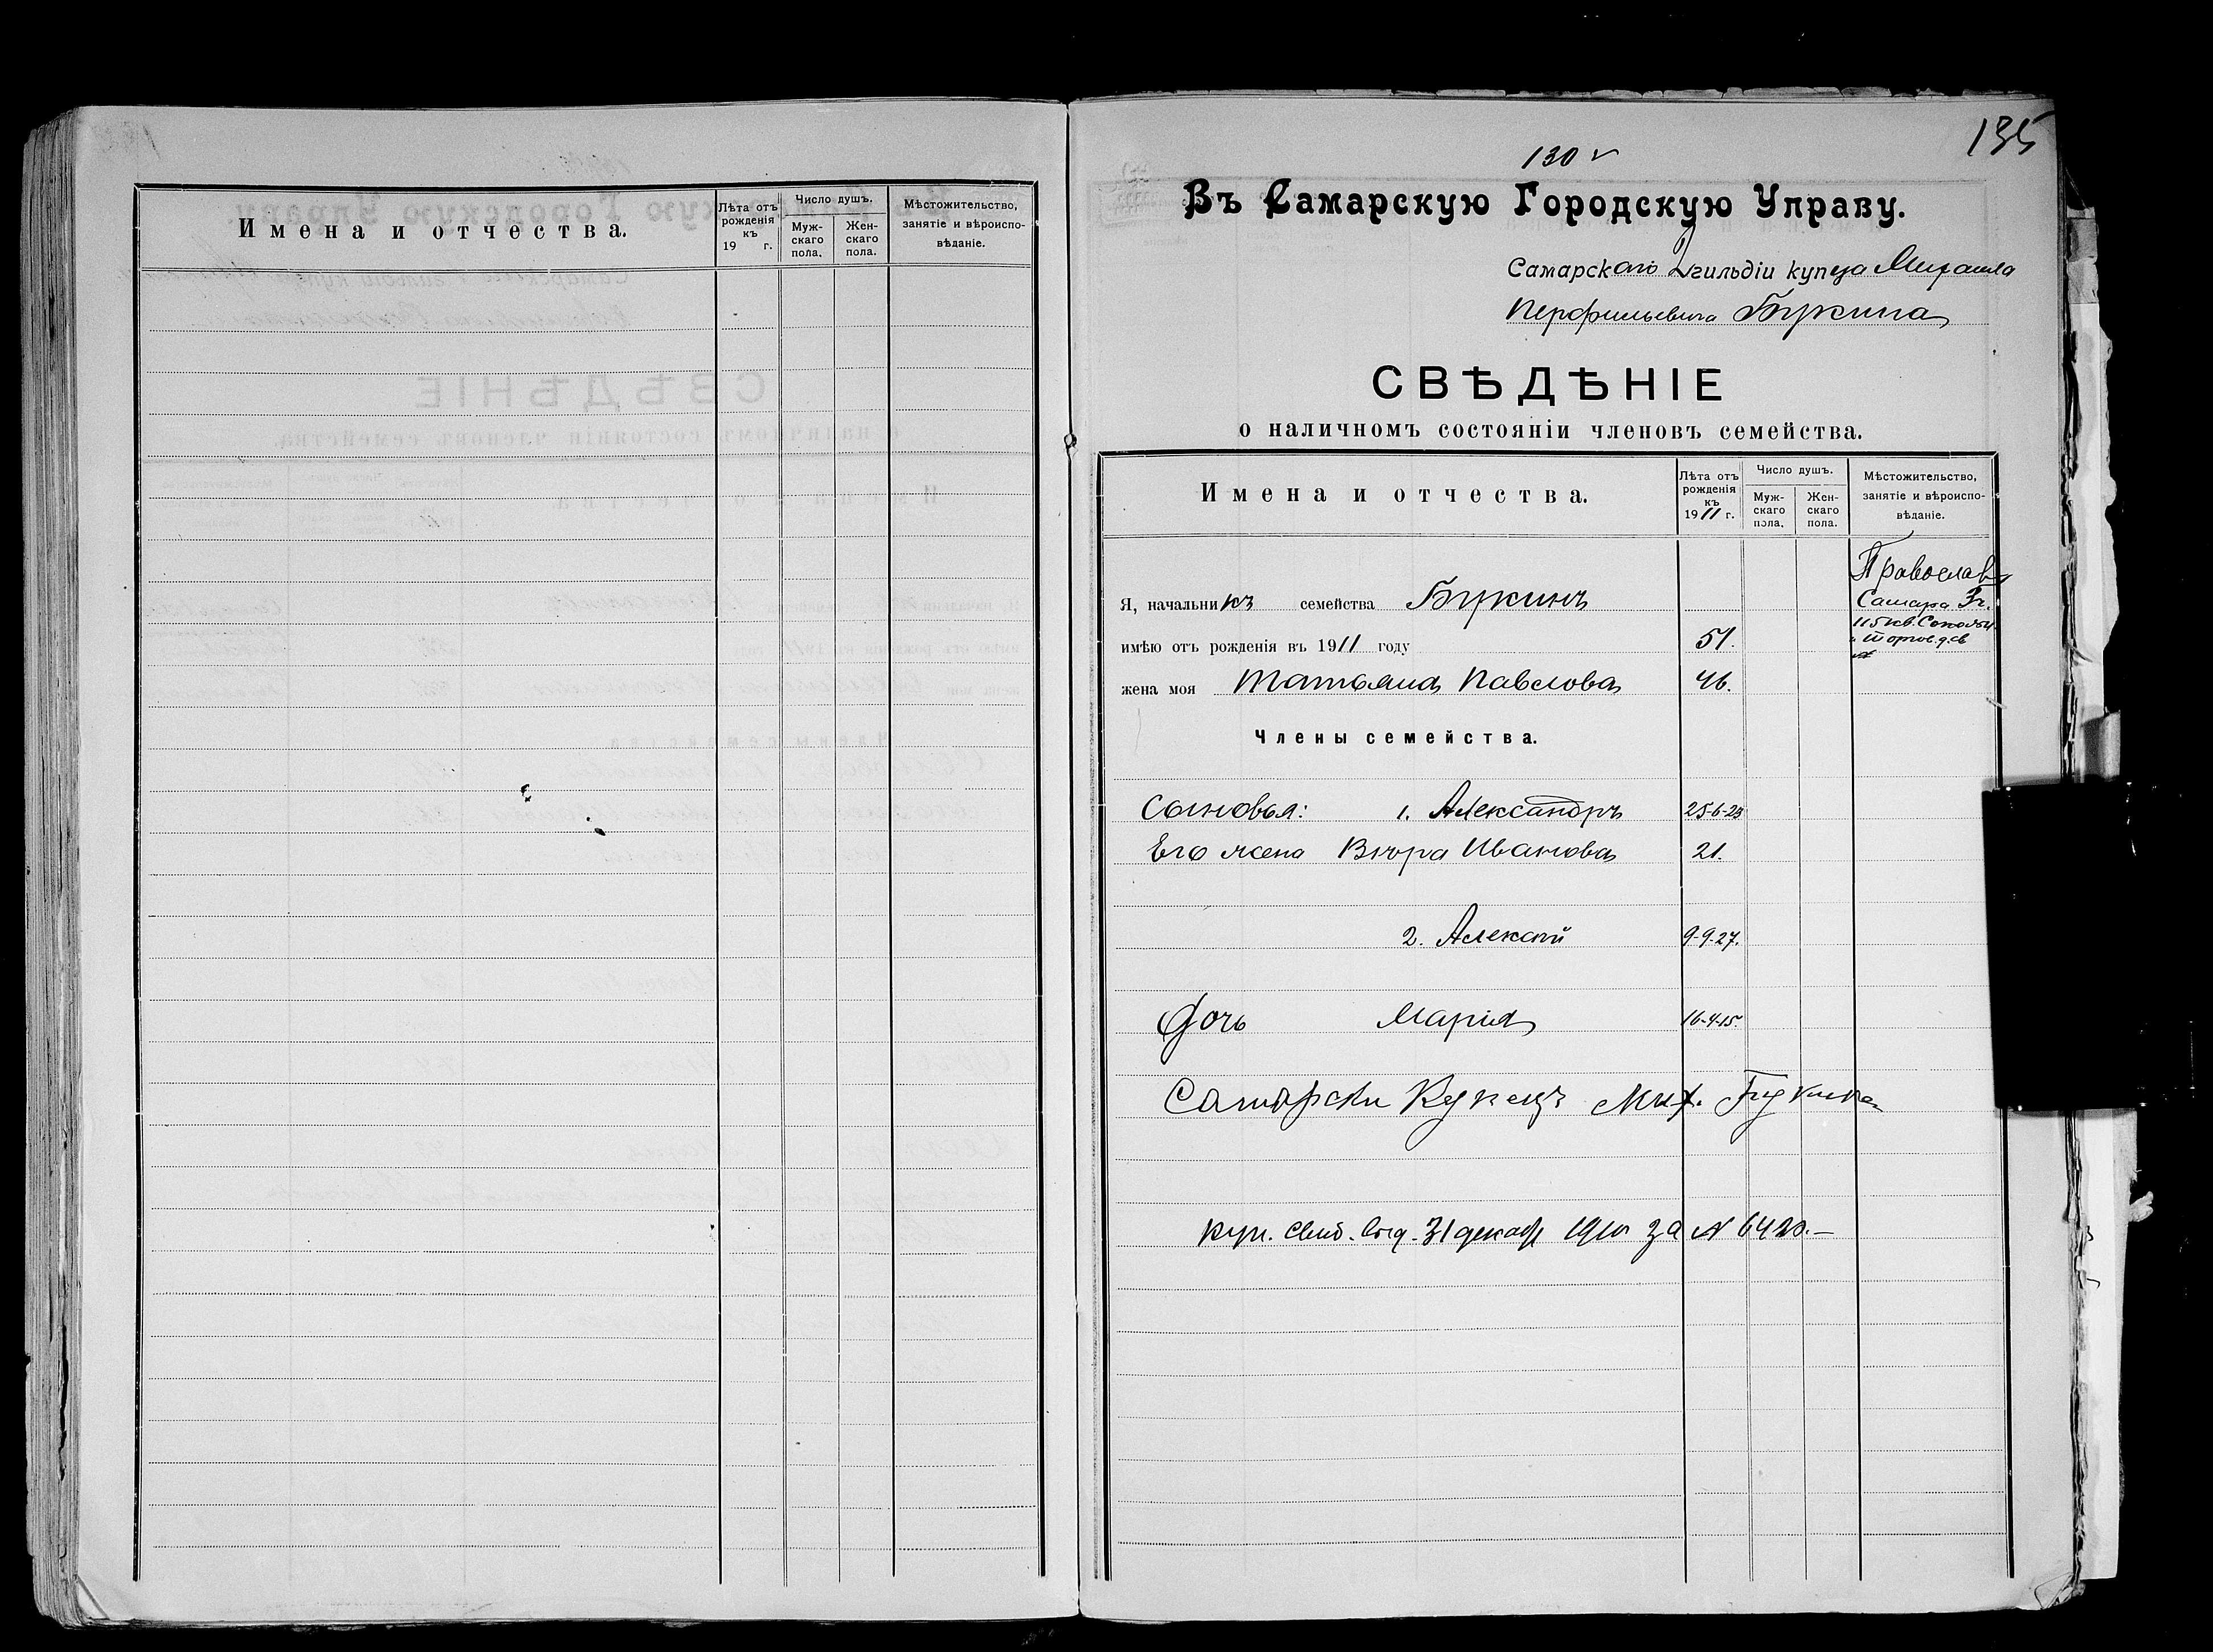 Имена и отчества.
Лѣта отъ рожденія къ 19 г.
Число душъ.
Мужскаго пола.
Женскаго пола.
Мѣстожительство, занятіе и вѣроисповѣданіе.
135
130
Въ Самарскую Городскую Управу.
Самарскаго 2 гильдіи купца Михаила
Перфильевича Букина
СВѢДѢНІЕ
о наличномъ состояніи членовъ семейства.
Имена и отчества.
Лѣта отъ рожденія къ 1911 г.
Число душъ.
Мужскаго пола.
Женскаго пола.
Мѣстожительство, занятіе и вѣроисповѣданіе.
Православ
Я, начальникъ семейства Букинъ
Самара 3 ч.
115 кв.
имѣю отъ рожденія въ 1911 году 51.
жена моя Татьяна Павлова 46.
Члены семейства.
Сыновья: 1. Александръ 25-6-23
Его жена Вѣра Иванова 21.
2. Алексѣй 9-9-27.
Дочь Марія 16-4-15.
Самарски Купецъ Мих. Букинъ
куп. свид. выд. 31 декаб 1910 за № 6420.—